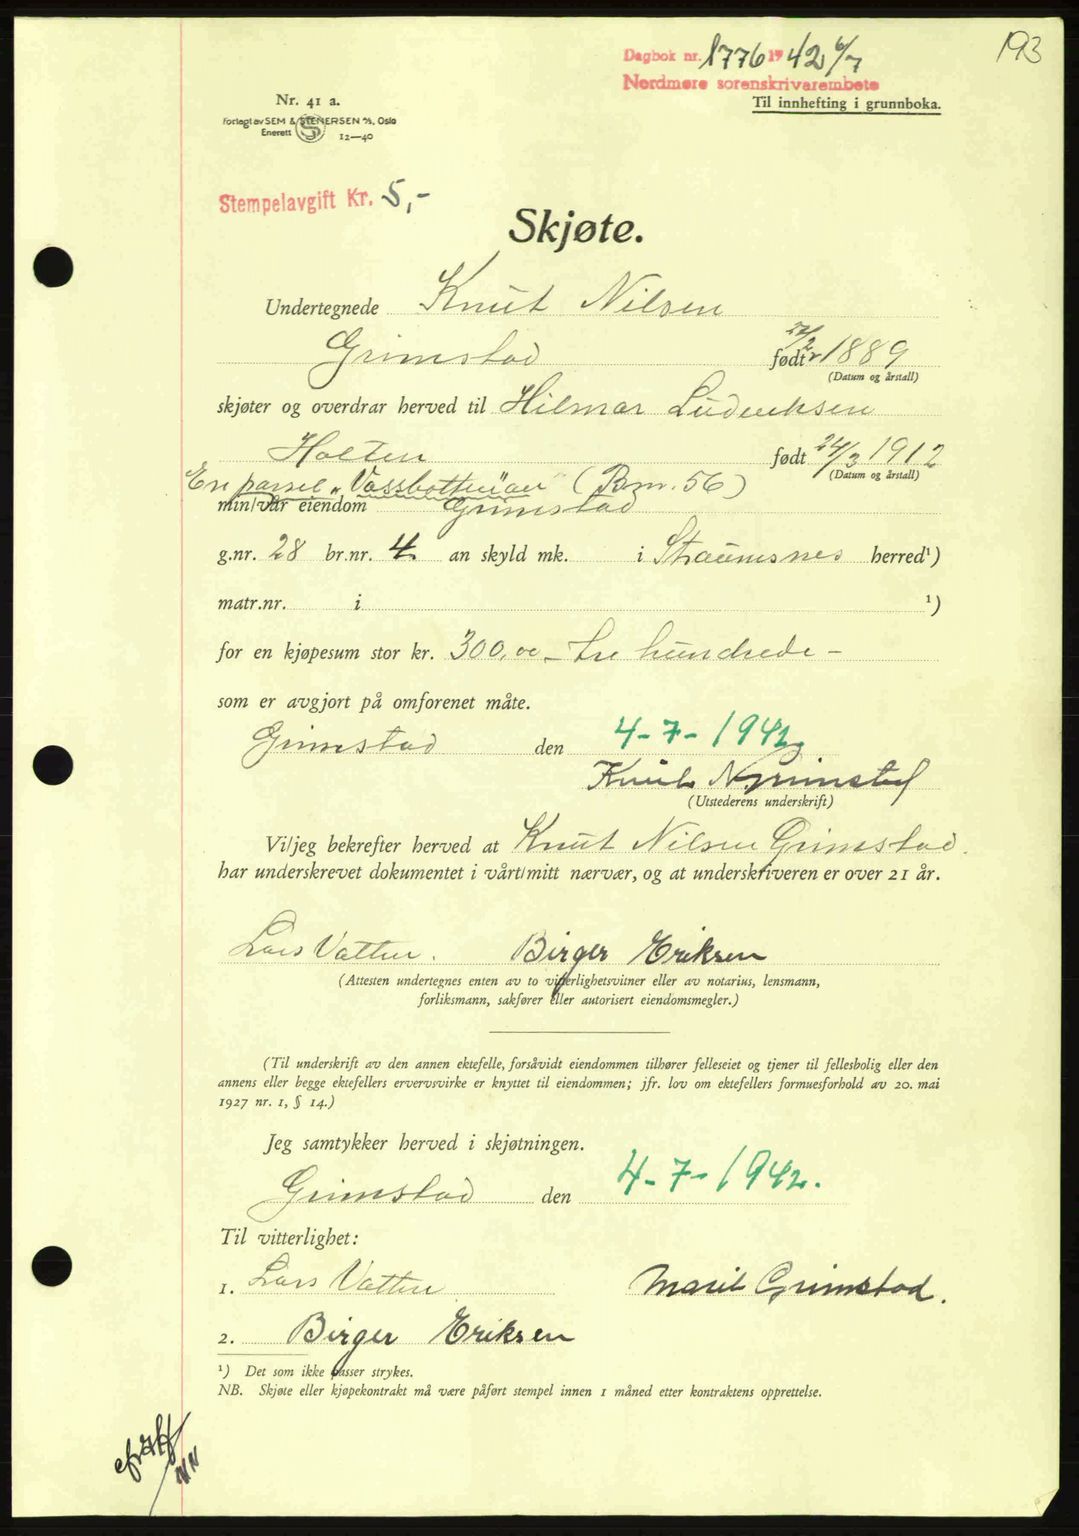 193
Dagbok nr. 1776 1942 6/7
Nordmøre sorenskrivarembete
Til innhefting i grunnboka.
Nr. 41 a.
Forlagt av SEM & STENERSEN A/S, Oslo
Enerett S 12—40
Stempelavgift Kr. 5,-
Skjøte.
Undertegnede Knut Nilsen
Grimstad født 1889
(Datum og årstall)
skjøter og overdrar herved til Hilmar Ludvriksen
Holten født 24/3 1912
(Datum og årstall)
En parsel „Vassbotten" av (Brnr. 56)
min/vår eiendom Grimstad
g.nr. 28 br.nr. 4 an skyld mk. i Straumsnes herred¹)
matr.nr. i ¹)
for en kjøpesum stor kr. 300,00 - tre hundrede -
som er avgjort på omforenet måte.
Grimstad den 4-7-1942
Knut N Grimstad
(Utstederens underskrift)
Vi/jeg bekrefter herved at Knut Nilsen Grimstad
har underskrevet dokumentet i vårt/mitt nærvær, og at underskriveren er over 21 år.
Lars Vatten. Birger Eriksen
(Attesten undertegnes enten av to vitterlighetsvitner eller av notarius, lensmann,
forliksmann, sakfører eller autorisert eiendomsmegler.)
(Til underskrift av den annen ektefelle, forsåvidt eiendommen tilhører felleseiet og tjener til fellesbolig eller den
annens eller begge ektefellers ervervsvirke er knyttet til eiendommen; jfr. lov om ektefellers formuesforhold av 20. mai
1927 nr. 1, § 14.)
Jeg samtykker herved i skjøtningen.
Grimstad den 4-7-1942.
Til vitterlighet:
1. Lars Vatten Marit Grimstad.
2. Birger Eriksen
¹) Det som ikke passer strykes.
NB. Skjøte eller kjøpekontrakt må være påført stempel innen 1 måned etter kontraktens opprettelse.